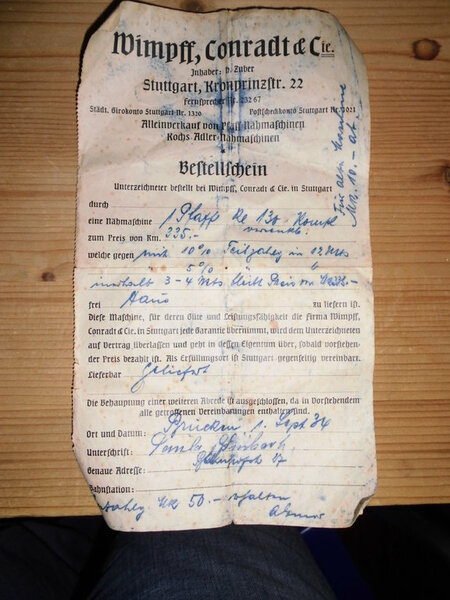 Wimpff, Conradt & Cie.
Inhaber: P. Zuber
Stuttgart, Kronprinzstr. 22
Fernsprecher Nr. 232 67
Städt. Girokonto Stuttgart Nr. 1320 Postscheckkonto Stuttgart Nr.
Alleinverkauf von Pfaff-Nähmaschinen
Kochs-Adler-Nähmaschinen
Bestellschein
Unterzeichneter bestellt bei Wimpff, Conradt & Cie. in Stuttgart
durch
eine Nähmaschine 1 Pfaff Kl 130
zum Preis von Rm. 235.-
welche gegen mit 10% in 12 Mts
" 5% "
innerhalb 3-4 Mts bleibt Preis von
frei Haus zu liefern ist.
Diese Maschine, für deren Güte und Leistungsfähigkeit die Firma Wimpff,
Conradt & Cie. in Stuttgart jede Garantie übernimmt, wird dem Unterzeichneten
auf Vertrag überlassen und geht in dessen Eigentum über, sobald vorstehen-
der Preis bezahlt ist. Als Erfüllungsort ist Stuttgart gegenseitig vereinbart.
Lieferbar geliefert
Die Behauptung einer weiteren Abrede ist ausgeschlossen, da in Vorstehendem
alle getroffenen Vereinbarungen enthalten sind.
Ort und Datum: 1. Sept 34
Unterschrift:
Genaue Adresse: 17
Bahnstation:
50.- erhalten
Für alte Maschine
Mk. 10.- ab.